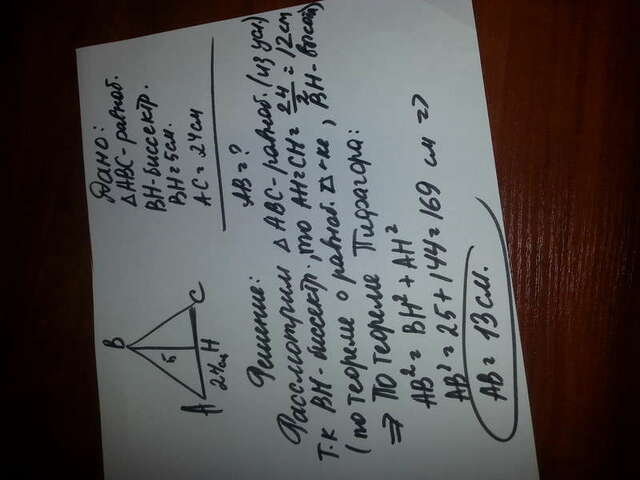 Дано:
△ABC - равноб.
BH - биссектр.
BH = 5 см.
AC = 24 см
AB = ?
B
5
A
24 см
H
C
Решение:
Рассмотрим △ABC - равноб. (из усл)
т.к BH - биссектр., то AH = CH = 24/2 = 12 см
(по теореме о равноб. △-ке, BH - высот)
⇒ По теореме Пифагора:
AB² = BH² + AH²
AB² = 25 + 144 = 169 см ⇒
AB = 13 см.